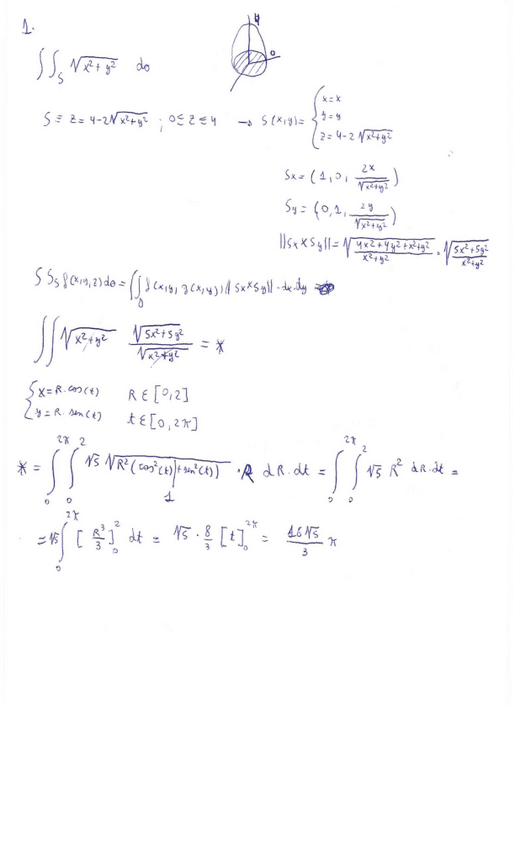 1.
∫∫_S √(x²+y²) dσ
S ≡ z = 4-2√(x²+y²) ; 0 ≤ z ≤ 4 → S(x,y) = { x=x
y=y
z = 4-2√(x²+y²)
Sx = (1, 0, 2x/√(x²+y²))
Sy = (0, 1, 2y/√(x²+y²))
||Sx × Sy|| = √((4x2+4y²+x²+y²)/(x²+y²)) = √((5x²+5y²)/(x²+y²))
∫∫_S f(x,y,z) dσ = ∫∫ f(x,y, z(x,y)) || Sx × Sy || · dx dy
∫∫ √(x²+y²) √(5x²+5y²)/√(x²+y²) = *
{ x = R·cos(t) R ∈ [0,2]
y = R·sen(t) t ∈ [0,2π]
* = ∫₀^2π ∫₀^2 √5 √(R²(cos²(t)+sen²(t))) · R dR·dt = ∫₀^2π ∫₀^2 √5 R² dR·dt =
1
= √5 ∫₀^2π [R³/3]₀^2 dt = √5 · 8/3 [t]₀^2π = 16√5/3 π